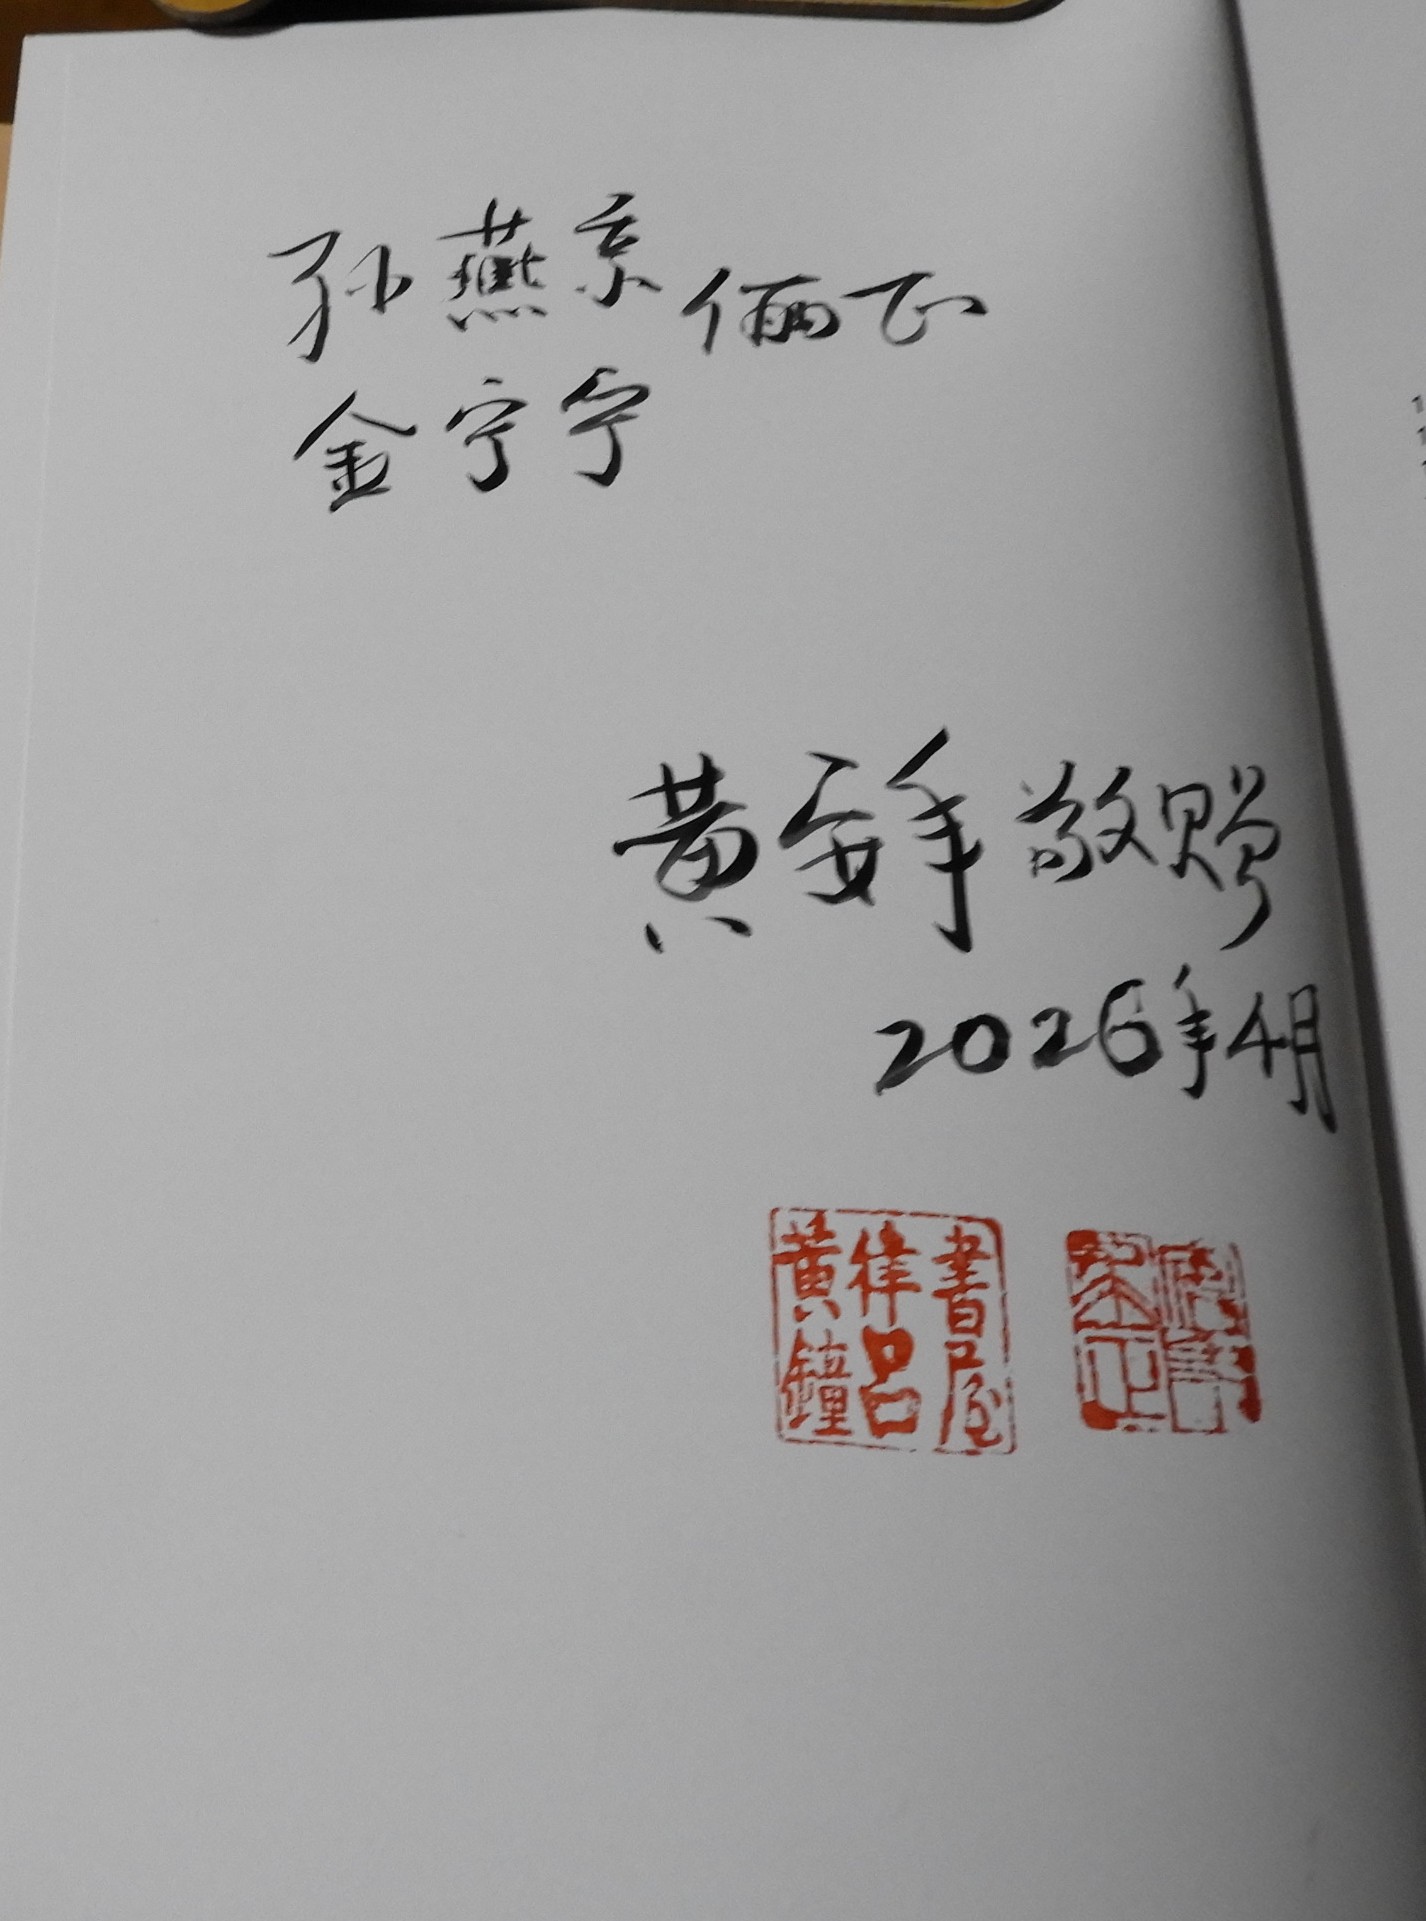 孙燕京 俪正
金宁宁
黄安年 敬赠
2026年4月
黄钟
律吕
書屋